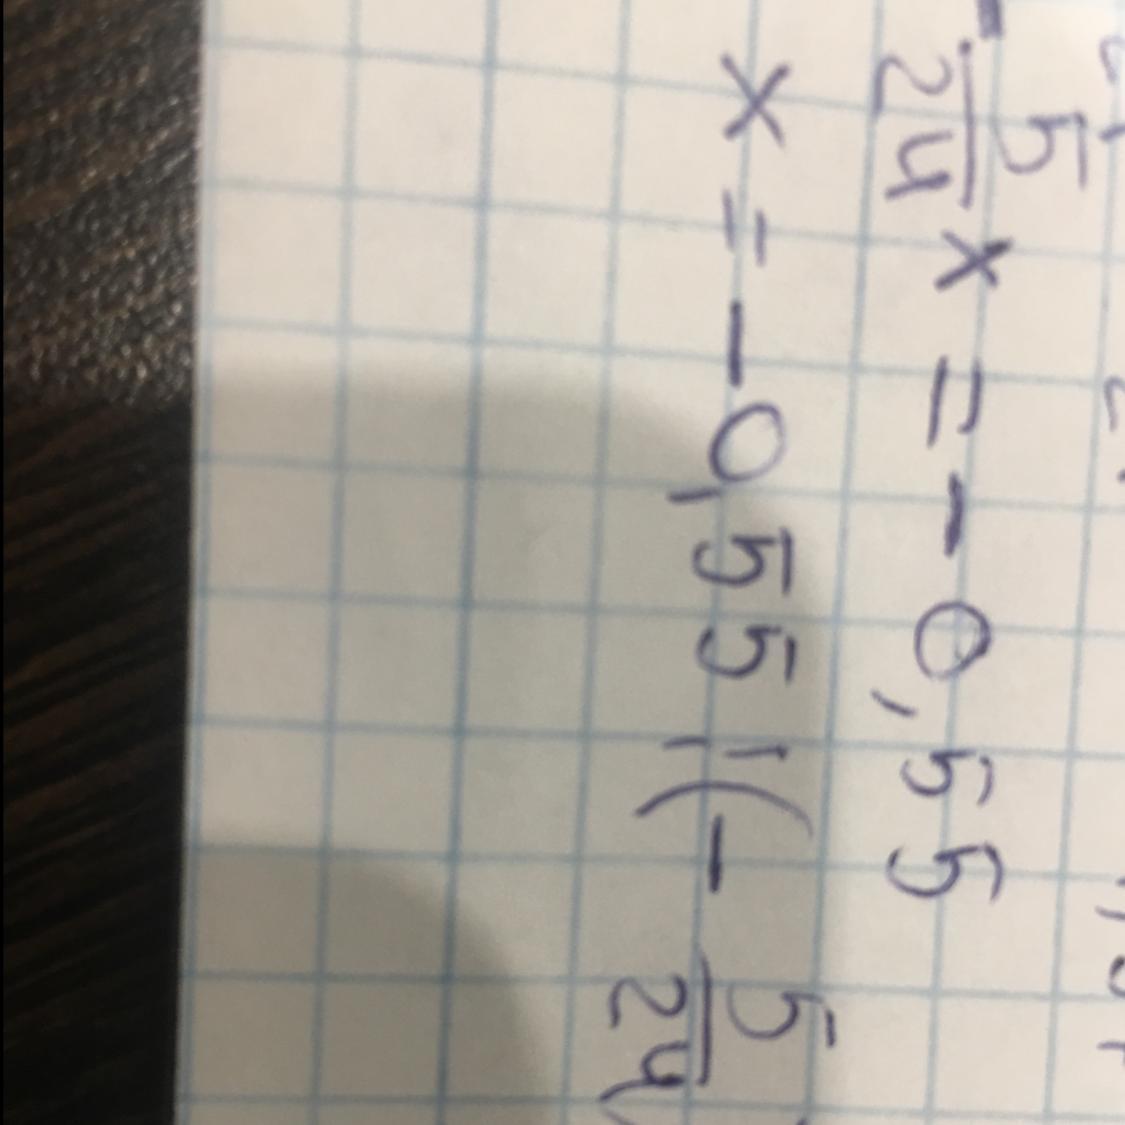 -5/24 x = -0,55
x = -0,55 : (-5/24)